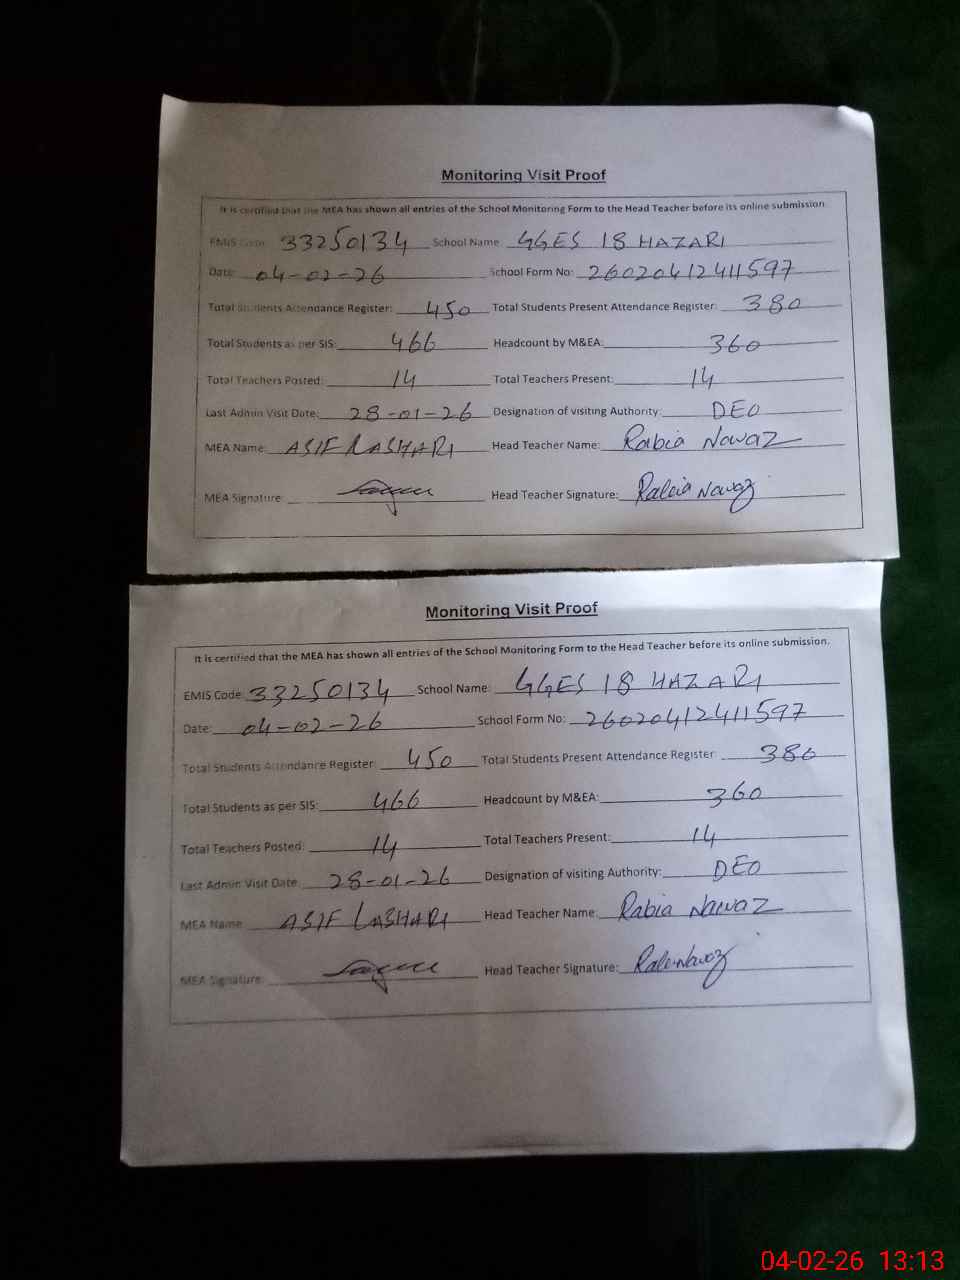 Monitoring Visit Proof
It is certified that the MEA has shown all entries of the School Monitoring Form to the Head Teacher before its online submission.
EMIS Code: 33250134 School Name GGES 18 HAZARI
Date: 04-02-26 School Form No: 26020412411597
Total Students Attendance Register: 450 Total Students Present Attendance Register: 380
Total Students as per SIS: 466 Headcount by M&EA: 360
Total Teachers Posted: 14 Total Teachers Present: 14
Last Admin Visit Date: 28-01-26 Designation of visiting Authority: DEO
MEA Name: ASIF LASHARI Head Teacher Name: Rabia Nawaz
MEA Signature: Head Teacher Signature: Rabia Nawaz
Monitoring Visit Proof
It is certified that the MEA has shown all entries of the School Monitoring Form to the Head Teacher before its online submission.
EMIS Code: 33250134 School Name: GGES 18 HAZARI
Date: 04-02-26 School Form No: 26020412411597
Total Students Attendance Register: 450 Total Students Present Attendance Register: 380
Total Students as per SIS: 466 Headcount by M&EA: 360
Total Teachers Posted: 14 Total Teachers Present: 14
Last Admin Visit Date: 28-01-26 Designation of visiting Authority: DEO
MEA Name: ASIF LASHARI Head Teacher Name: Rabia Nawaz
MEA Signature: Head Teacher Signature: Rabia Nawaz
04-02-26 13:13